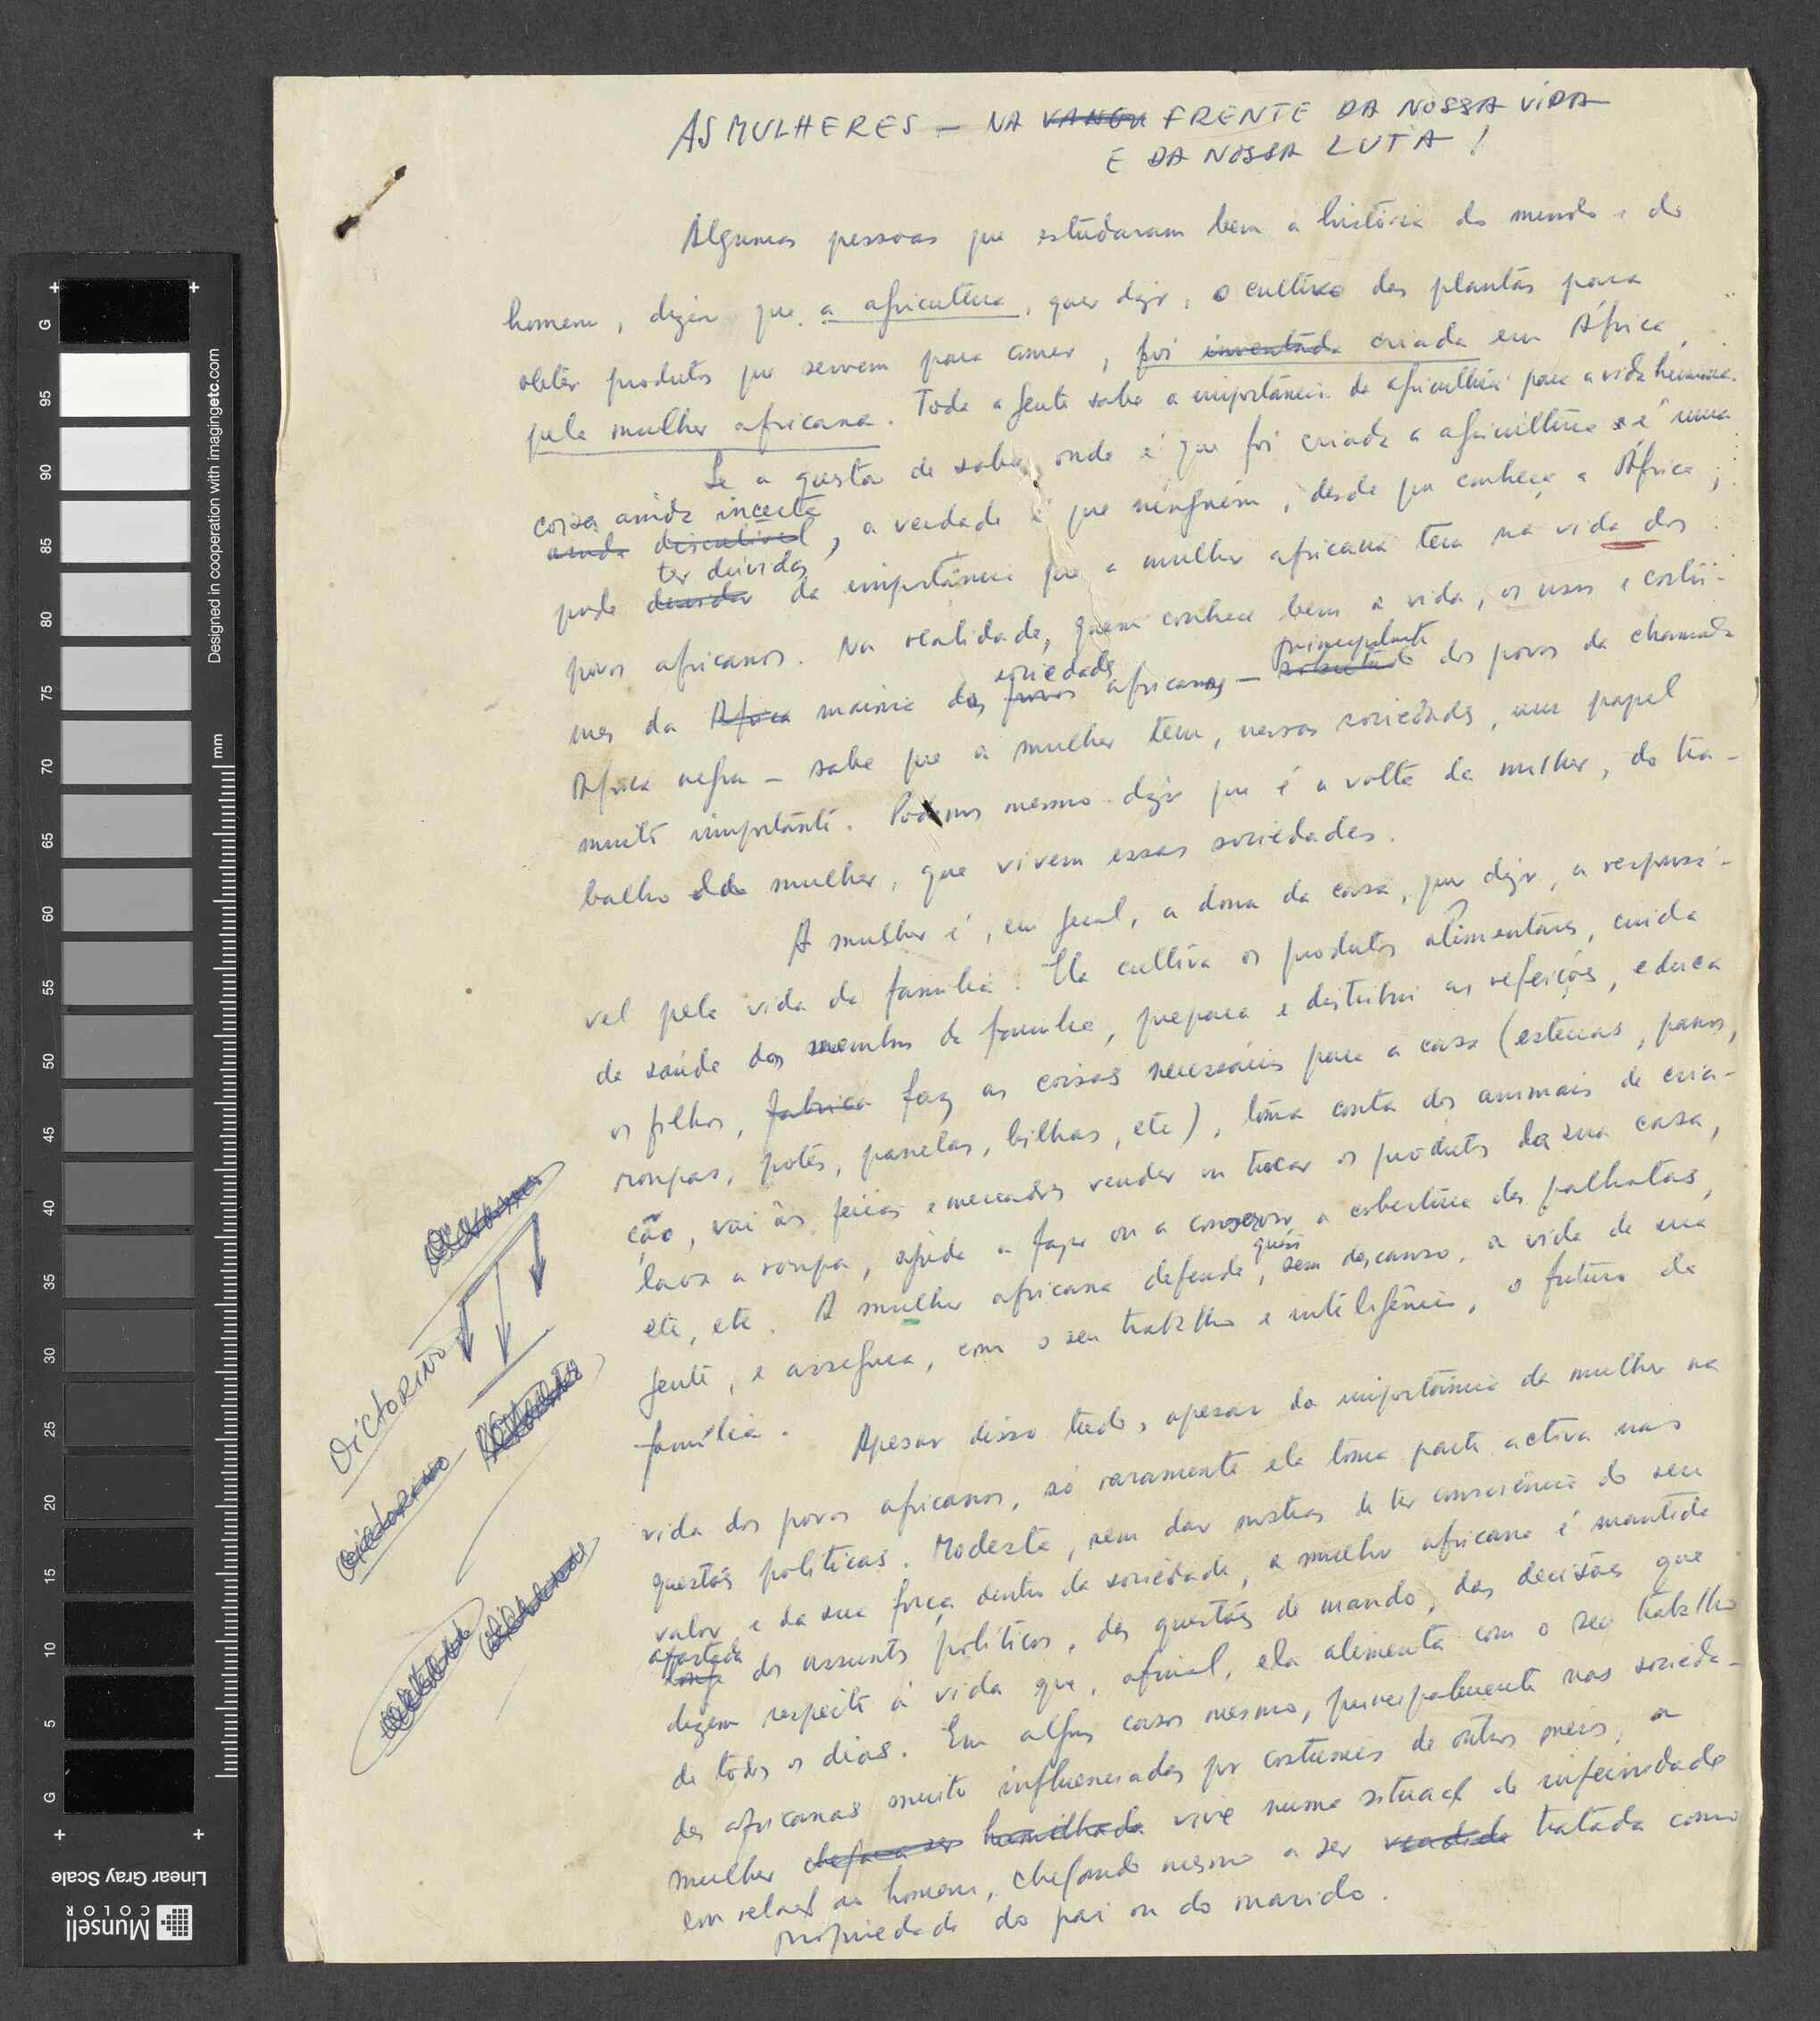 AS MULHERES — NA VANGU FRENTE DA NOSSA VIDA
E DA NOSSA LUTA !
Algumas pessoas que estudaram bem a história do mundo e do
homem, dizem que a agricultura, quer dizer, o cultivo das plantas para
obter produtos que servem para comer, foi inventada criada em África,
pela mulher africana. Toda a gente sabe a importância da agricultura para a vida humana.
Se a questão de saber onde é que foi criada a agricultura é uma
coisa ainda incerta
ainda discutível, a verdade é que ninguém, desde que conheça a África,
ter dúvidas
pode duvidar da importância que a mulher africana tem na vida dos
povos africanos. Na realidade, quem conhece bem a vida, os usos e costu-
sociedades principalmente
mes da África maioria das povos africanas — sobretudo dos povos da chamada
África negra — sabe que a mulher tem, nessas sociedades, um papel
muito importante. Podemos mesmo dizer que é à volta da mulher, do tra-
balho da mulher, que vivem essas sociedades.
A mulher é, em geral, a dona da casa, quer dizer, a responsá-
vel pela vida da família. Ela cultiva os produtos alimentares, cuida
da saúde dos membros da família, prepara e distribui as refeições, educa
os filhos, fabrica faz as coisas necessárias para a casa (esteiras, panos,
roupas, potes, panelas, bilhas, etc), toma conta dos animais de cria-
ção, vai às feiras e mercados vender ou trocar os produtos da sua casa,
lava a roupa, ajuda a fazer ou a conservar a cobertura das palhotas,
quási
etc, etc. A mulher africana defende, sem descanso, a vida de sua
gente, e assegura, com o seu trabalho e inteligência, o futuro da
família.
Apesar disso tudo, apesar da importância da mulher na
vida dos povos africanos, só raramente ela toma parte activa nas
questões políticas. Modesta, sem dar mostras de ter consciência do seu
valor e da sua força dentro da sociedade, a mulher africana é mantida
afastada
longe dos assuntos políticos, das questões de mando, das decisões que
dizem respeito à vida que, afinal, ela alimenta com o seu trabalho
de todos os dias. Em alguns casos mesmo, principalmente nas socieda-
des africanas muito influenciadas por costumes de outros meios, a
mulher chega a ser humilhada vive numa situação de inferioridade
em relação ao homem, chegando mesmo a ser vendida tratada como
propriedade do pai ou do marido.
VICTORINO
Victorino
Linear Gray Scale
Munsell
COLOR
Designed in cooperation with imagingetc.com
mm
G
95
90
85
80
75
70
65
60
55
50
45
40
35
30
25
20
15
10
5
G